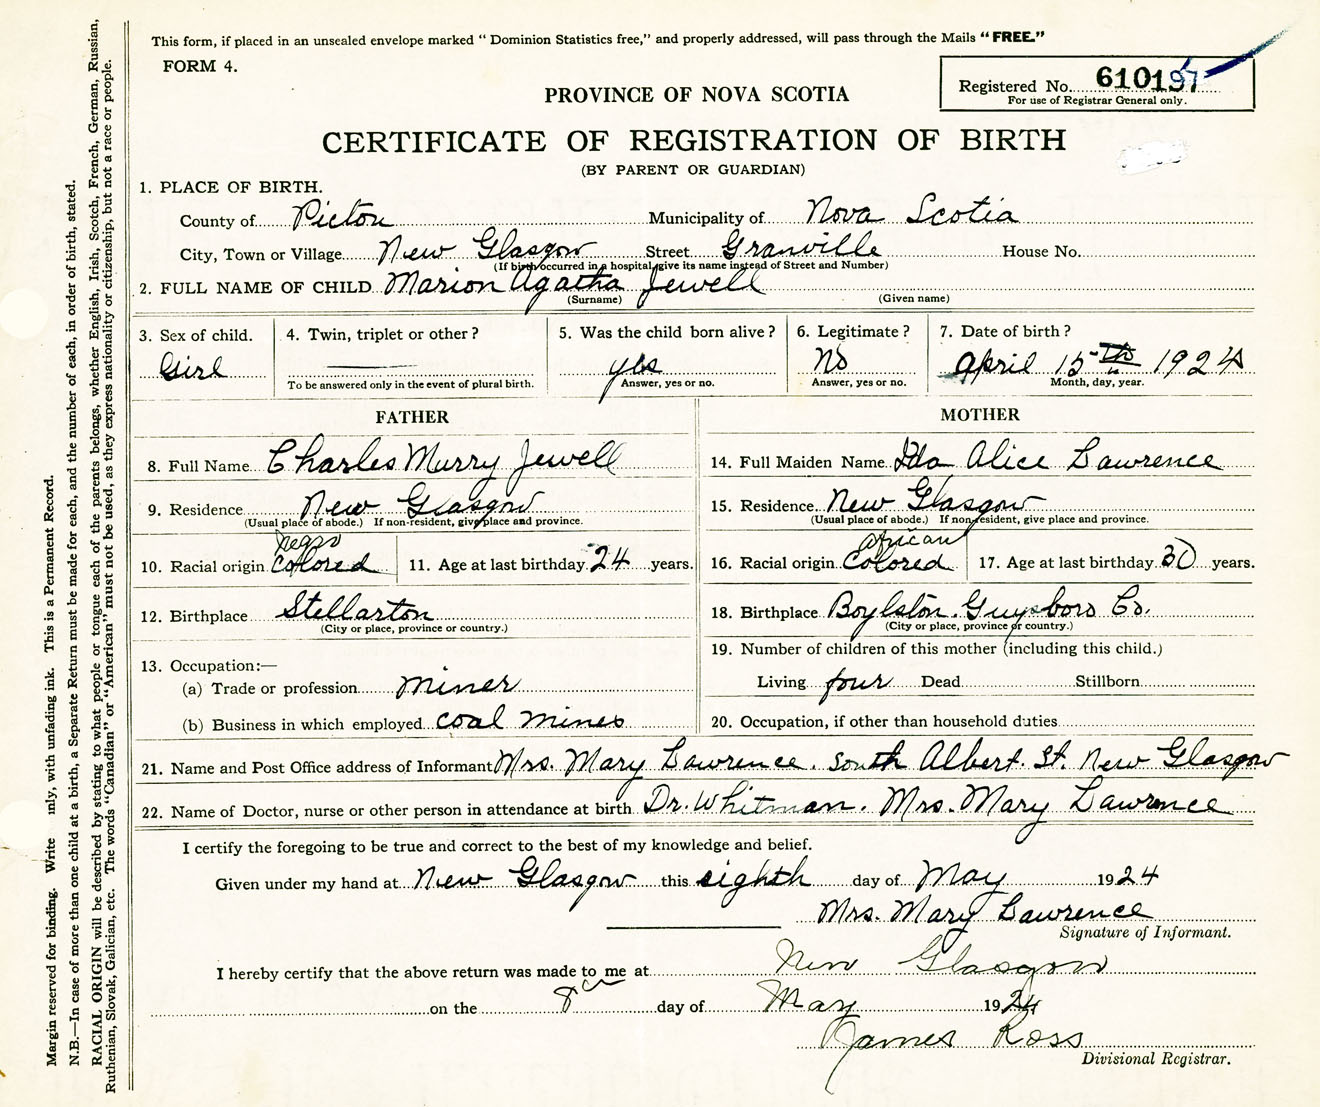 This form, if placed in an unsealed envelope marked “ Dominion Statistics free,” and properly addressed, will pass through the Mails “ FREE.”
FORM 4.
Registered No. 610197
For use of Registrar General only.
PROVINCE OF NOVA SCOTIA
CERTIFICATE OF REGISTRATION OF BIRTH
(BY PARENT OR GUARDIAN)
1. PLACE OF BIRTH.
County of Pictou Municipality of Nova Scotia
City, Town or Village New Glasgow Street Granville House No.
(If birth occurred in a hospital, give its name instead of Street and Number)
2. FULL NAME OF CHILD Marion Agatha Jewell
(Surname) (Given name)
3. Sex of child. 4. Twin, triplet or other ? 5. Was the child born alive ? 6. Legitimate ? 7. Date of birth ?
Girl —— yes No April 15th 1924
To be answered only in the event of plural birth. Answer, yes or no. Answer, yes or no. Month, day, year.
FATHER MOTHER
8. Full Name Charles Murry Jewell 14. Full Maiden Name Ida Alice Lawrence
9. Residence New Glasgow 15. Residence New Glasgow
(Usual place of abode.) If non-resident, give place and province. (Usual place of abode.) If non-resident, give place and province.
Negro African
10. Racial origin Colored 11. Age at last birthday 24 years. 16. Racial origin Colored 17. Age at last birthday 30 years.
12. Birthplace Stellarton 18. Birthplace Boylston. Guysboro Co.
(City or place, province or country.) (City or place, province or country.)
13. Occupation:— 19. Number of children of this mother (including this child.)
(a) Trade or profession miner Living four Dead Stillborn
(b) Business in which employed coal mines 20. Occupation, if other than household duties
21. Name and Post Office address of Informant Mrs. Mary Lawrence. South Albert. St. New Glasgow
22. Name of Doctor, nurse or other person in attendance at birth Dr. Whitman. Mrs. Mary Lawrence
I certify the foregoing to be true and correct to the best of my knowledge and belief.
Given under my hand at New Glasgow this eighth day of May 1924
Mrs. Mary Lawrence
Signature of Informant.
I hereby certify that the above return was made to me at New Glasgow
on the 8th day of May 1924
James Ross
Divisional Registrar.
Margin reserved for binding. Write nly, with unfading ink. This is a Permanent Record.
N.B.—In case of more than one child at a birth, a Separate Return must be made for each, and the number of each, in order of birth, stated.
RACIAL ORIGIN will be described by stating to what people or tongue each of the parents belongs, whether English, Irish, Scotch, French, German, Russian,
Ruthenian, Slovak, Galician, etc. The words “Canadian” or “American” must not be used, as they express nationality or citizenship, but not a race or people.